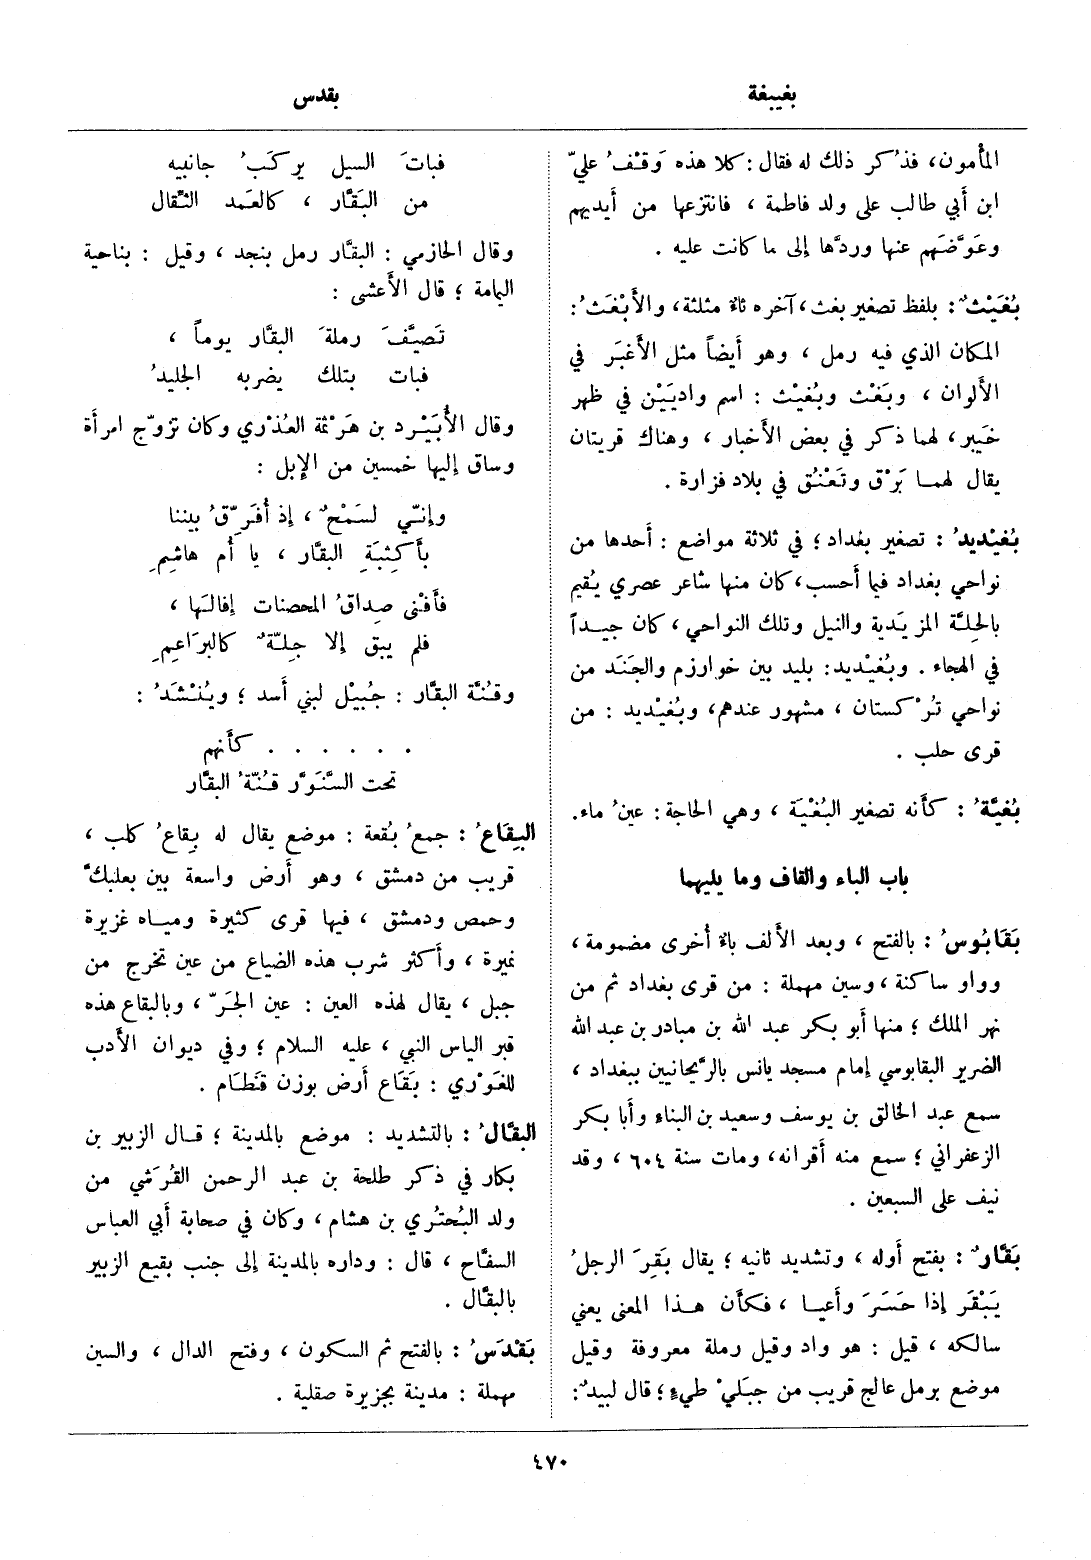 بغيبغة
بقدس
المأمون، فذُكر ذلك له فقال: كلا هذه وَقْفُ عليّ
ابن أبي طالب على ولد فاطمة، فانتزعها من أيديهم
وعَوَّضَهم عنها وردَّها إلى ما كانت عليه.
بُغَيْثٌ: بلفظ تصغير بغث، آخره ثاءٌ مثلثة، والأَبْغَثُ:
المكان الذي فيه رمل، وهو أيضاً مثل الأغبَر في
الألوان، وبَغْث وبُغَيْث: اسم واديَيْن في ظهر
خَيبر، لهما ذكر في بعض الأخبار، وهناك قريتان
يقال لهما بَرْق وتَعْنُق في بلاد فزارة.
بُغَيْديدُ: تصغير بغداد؛ في ثلاثة مواضع: أحدها من
نواحي بغداد فيما أحسب، كان منها شاعر عصري يُقيم
بالحِلّة المزيَدية والنيل وتلك النواحي، كان جيداً
في الهجاء. وبُغَيْديد: بليد بين خوارزم والجَنَد من
نواحي تُرْكستان، مشهور عندهم، وبُغَيْديد: من
قرى حلب.
بُغيَّةُ: كأنه تصغير البُغْيَة، وهي الحاجة: عينُ ماء.
باب الباء والقاف وما يليهما
بَقَابُوسُ: بالفتح، وبعد الألف باءٌ أُخرى مضمومة،
وواو ساكنة، وسين مهملة: من قرى بغداد ثم من
نهر الملك؛ منها أبو بكر عبد الله بن مبادر بن عبد الله
الضرير البقابوسي إمام مسجد يانس بالرَّيحانيين ببغداد،
سمع عبد الخالق بن يوسف وسعيد بن البناء وأبا بكر
الزعفراني؛ سمع منه أقرانه، ومات سنة ٦٠٤، وقد
نيف على السبعين.
بَقَّارٌ: بفتح أوله، وتشديد ثانيه؛ يقال بَقِرَ الرجلُ
يَبْقَر إذا حَسَرَ وأعيا، فكأن هذا المعنى يعني
سالكه، قيل: هو واد وقيل رملة معروفة وقيل
موضع برمل عالج قريب من جبَلَيْ طيءٍ؛ قال لبيدٌ:
فباتَ السيل يركَبُ جانبيه
من البَقَّار، كالعَمد الثَّقال
وقال الحازمي: البقَّار رمل بنجد، وقيل: بناحية
اليمامة؛ قال الأعشى:
تَصيَّفَ رملةَ البقَّار يوماً،
فبات بتلك يضربه الجليدُ
وقال الأُبَيْرد بن هَرْثمة العُذْري وكان تزوّج امرأة
وساق إليها خمسين من الإبل:
وإنّي لسَمْحٌ، إذ أُفَرِّقُ بيننا
بأَكثِبَةِ البقَّار، يا أم هاشمِ
فأفْنى صِداقُ المحصنات إفالَها،
فلم يبق إلا جِلّةٌ كالبراعِمِ
وقُنَّة البقَّار: جُبيْل لبني أسد؛ ويُنْشَدُ:
. . . . . . كأنهم
تحت السَّنَوَّر قُنّةُ البقَّار
البِقَاعُ: جمعُ بُقعة: موضع يقال له بِقاعُ كلب،
قريب من دمشق، وهو أرض واسعة بين بعلبكَّ
وحمص ودمشق، فيها قرى كثيرة ومياه غزيرة
نميرة، وأكثر شرب هذه الضياع من عين تخرج من
جبل، يقال لهذه العين: عين الجَرّ، وبالبقاع هذه
قبر الياس النبي، عليه السلام؛ وفي ديوان الأدب
للغَوْري: بَقَاع أرض بوزن قَطَام.
البقَّالُ: بالتشديد: موضع بالمدينة؛ قال الزبير بن
بكار في ذكر طلحة بن عبد الرحمن القُرَشي من
ولد البُحتُري بن هشام، وكان في صحابة أبي العباس
السفَّاح، قال: وداره بالمدينة إلى جنب بقيع الزبير
بالبقَّال.
بَقْدَسُ: بالفتح ثم السكون، وفتح الدال، والسين
مهملة: مدينة بجزيرة صقلية.
٤٧٠